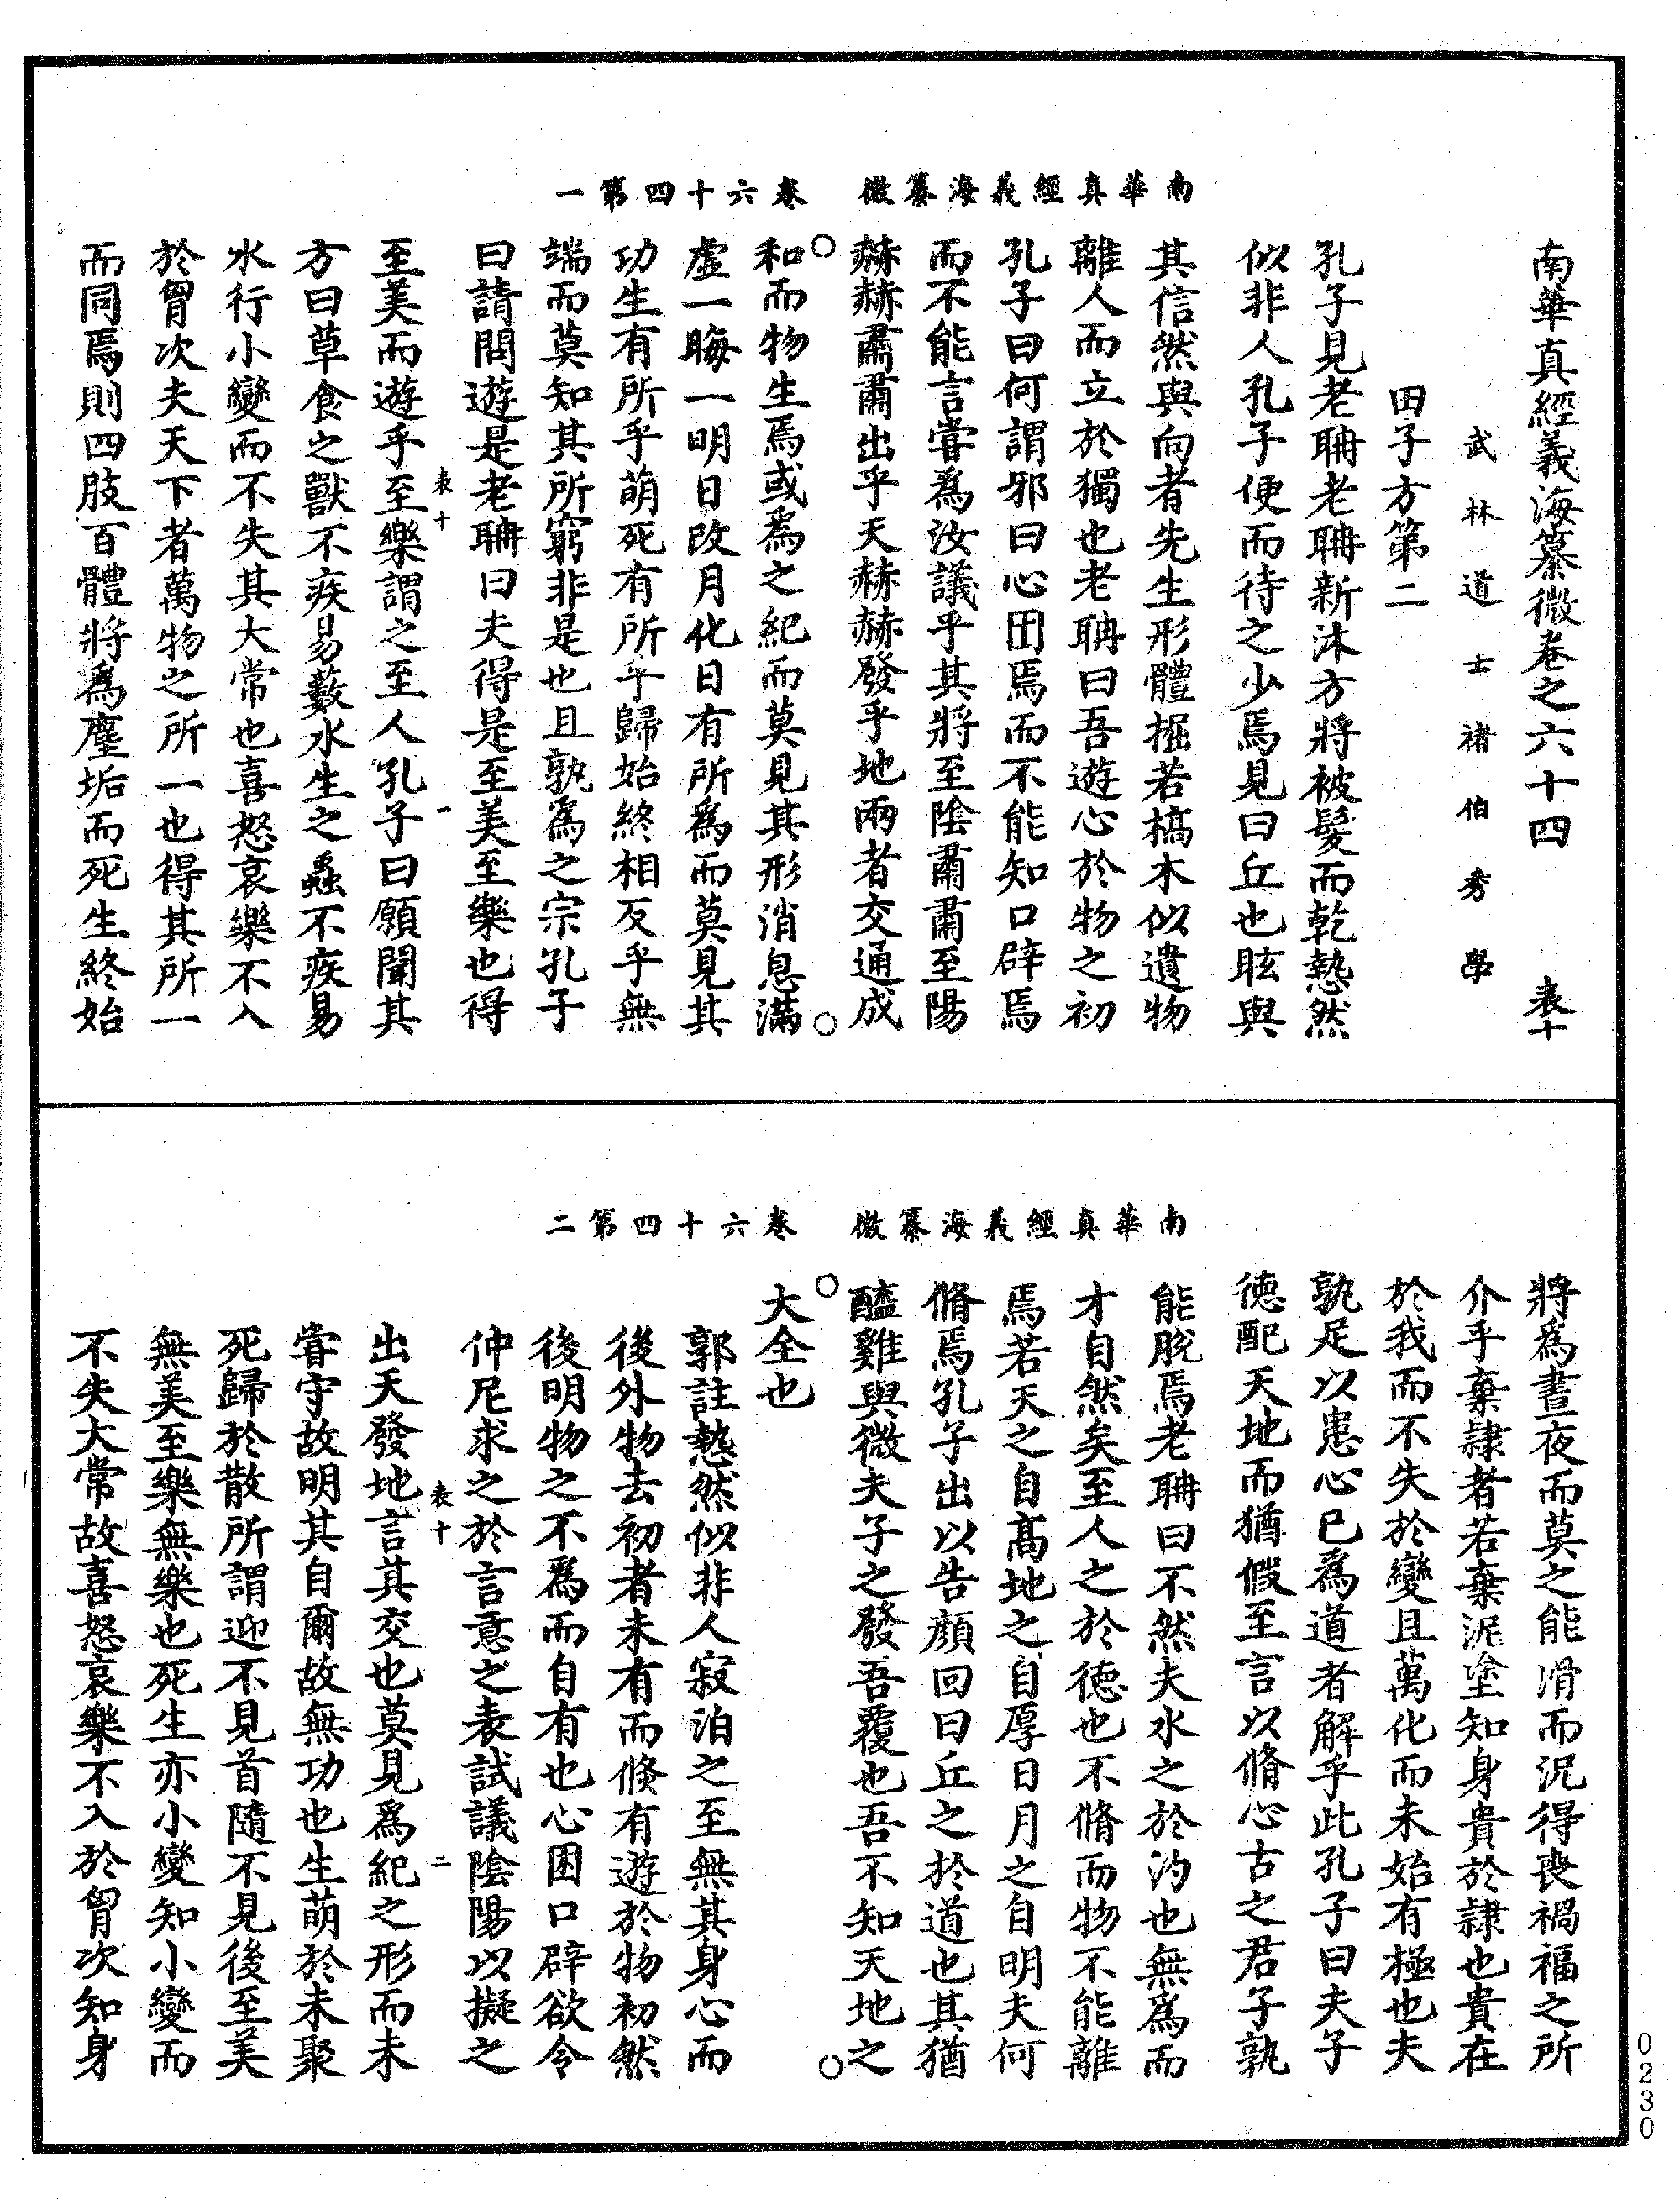 南華真經義海纂微卷之六十四　表十
武林道士褚伯秀學
田子方第二
孔子見老聃老聃新沐方將被髮而乾慹然
似非人孔子便而待之少焉見曰丘也眩與
其信然與向者先生形體掘若槁木似遺物
離人而立於獨也老聃曰吾遊心於物之初
孔子曰何謂邪曰心困焉而不能知口辟焉
而不能言嘗爲汝議乎其將至陰肅肅至陽
赫赫肅肅出乎天赫赫發乎地兩者交通成
南華真經義海纂微　卷六十四第一
和而物生焉或爲之紀而莫見其形消息滿
虛一晦一明日改月化日有所爲而莫見其
功生有所乎萌死有所乎歸始終相反乎無
端而莫知其所窮非是也且孰爲之宗孔子
曰請問遊是老聃曰夫得是至美至樂也得
表十　一
至美而遊乎至樂謂之至人孔子曰願聞其
方曰草食之獸不疾易藪水生之蟲不疾易
水行小變而不失其大常也喜怒哀樂不入
於胷次夫天下者萬物之所一也得其所一
而同焉則四肢百體將爲塵垢而死生終始
將爲晝夜而莫之能滑而況得喪禍福之所
介乎棄隸者若棄泥塗知身貴於隸也貴在
於我而不失於變且萬化而未始有極也夫
孰足以患心已爲道者解乎此孔子曰夫子
德配天地而猶假至言以脩心古之君子孰
能脫焉老聃曰不然夫水之於汋也無爲而
才自然矣至人之於德也不脩而物不能離
焉若天之自高地之自厚日月之自明夫何
脩焉孔子出以告顏回曰丘之於道也其猶
醯雞與微夫子之發吾覆也吾不知天地之
南華真經義海纂微　卷六十四第二
大全也
郭註慹然似非人寂泊之至無其身心而
後外物去初者未有而倏有遊於物初然
後明物之不爲而自有也心困口辟欲令
仲尼求之於言意之表試議陰陽以擬之
表十　二
出天發地言其交也莫見爲紀之形而未
嘗守故明其自爾故無功也生萌於未聚
死歸於散所謂迎不見首隨不見後至美
無美至樂無樂也死生亦小變知小變而
不失大常故喜怒哀樂不入於胷次知身
0230